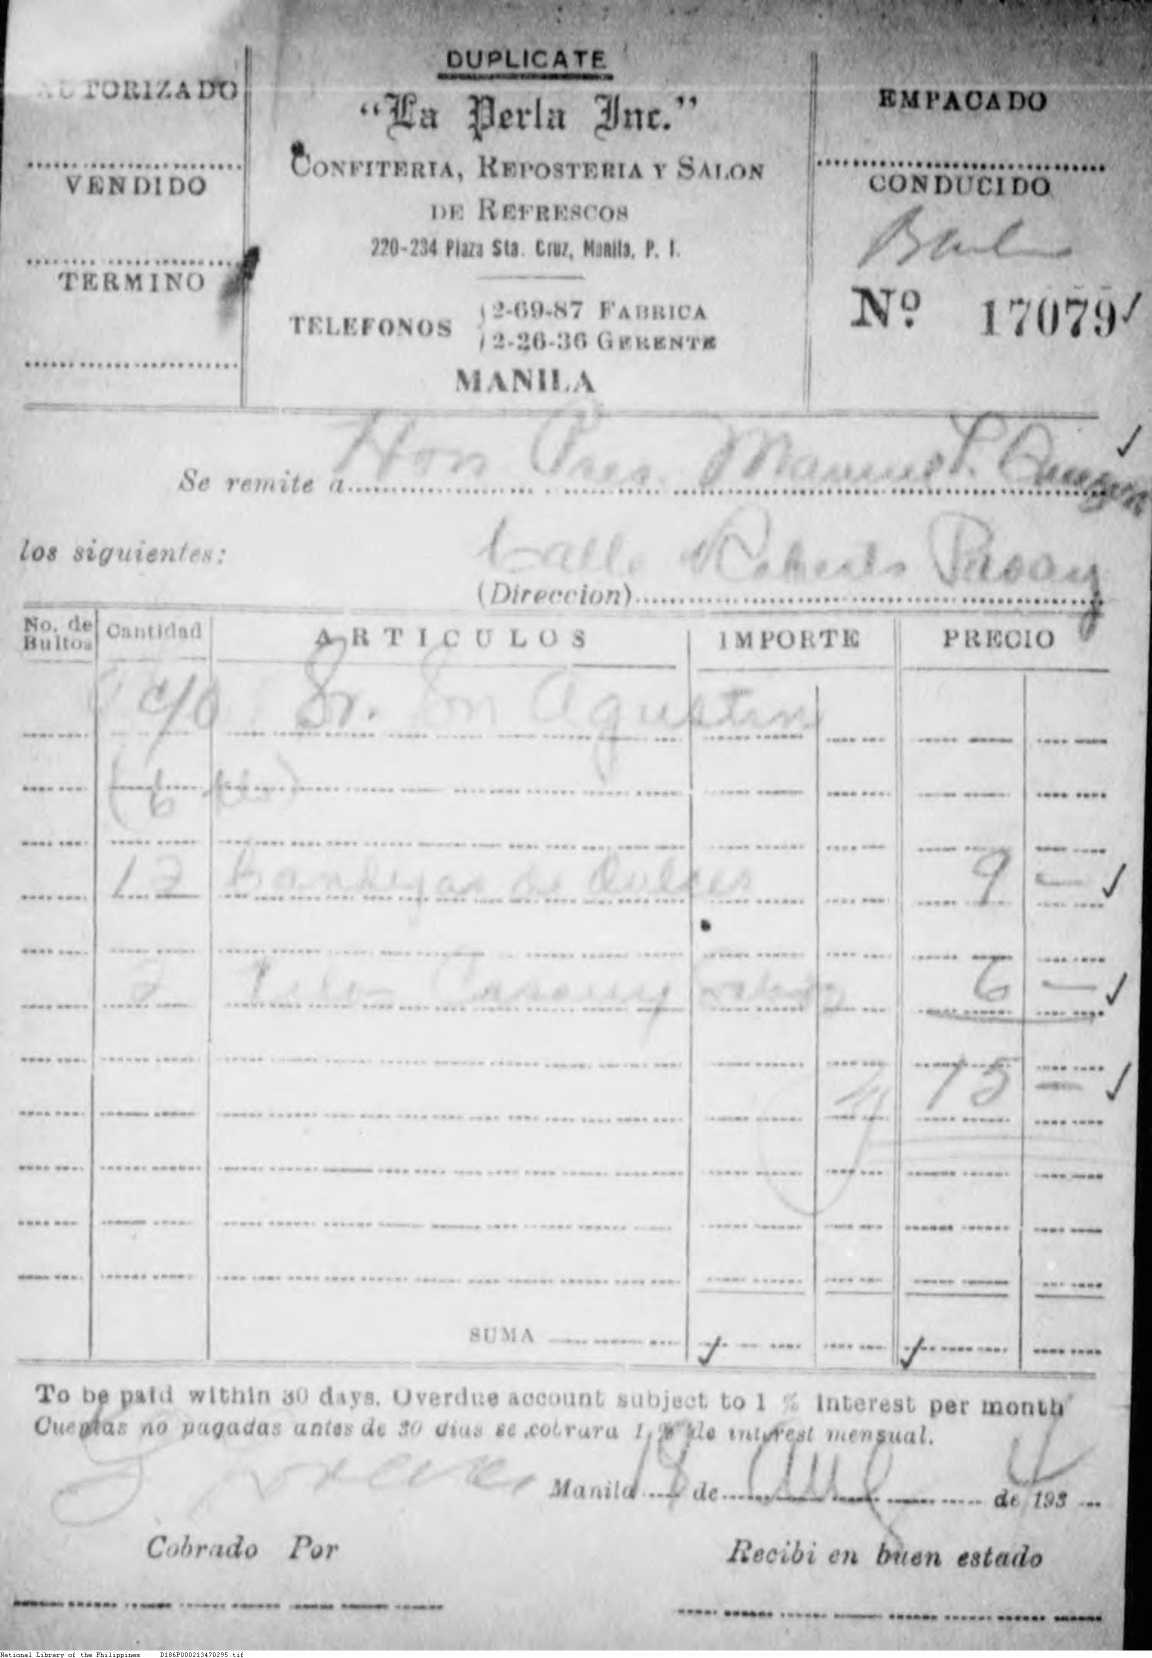 DUPLICATE
"La Perla Inc."
CONFITERIA, REPOSTERIA Y SALON
DE REFRESCOS
220-234 Plaza Sta. Cruz, Manila, P. I.
TELEFONOS 2-69-87 FABRICA
2-26-36 GERENTE
MANILA
AUTORIZADO
VENDIDO
TERMINO
EMPACADO
CONDUCIDO
Nº 17079
Se remite a Hon Pres. Manuel L. Quezon
los siguientes: Calle Roberts Pasay
(Direccion)
No. de Bultos Cantidad ARTICULOS IMPORTE PRECIO
c/o Sr. San Agustin
(6
12 Bandejas de Dulces 9 —
2 6 —
15 —
SUMA
To be paid within 30 days. Overdue account subject to 1 % interest per month
Cuentas no pagadas antes de 30 dias se cobrara 1 % de interest mensual.
Manila 18 de Aug de 193
Cobrado Por
Recibi en buen estado
National Library of the Philippines D186P000213470295.tif